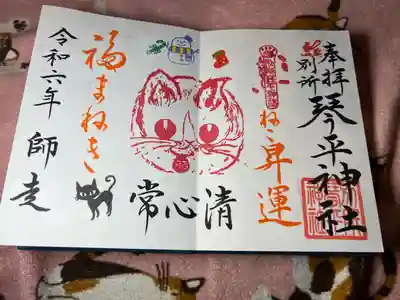 奉拝
別所
琴平神社
ねこ昇運
清心常
福まねき
令和六年 師走